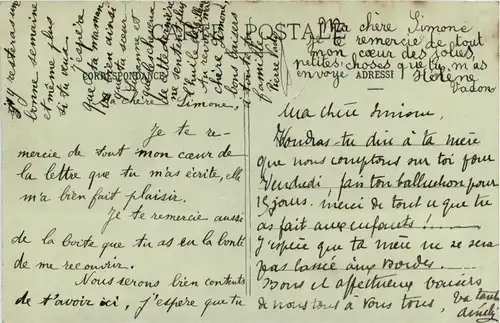 POSTALE
CORRESPONDANCE
ADRESSE
Ma chère Simone,
Je te re-
mercie de tout mon cœur de
la lettre que tu m'as écrite, elle
m'a bien fait plaisir.
Je te remercie aussi
de la boite que tu as eu la bonté
de me recouvrir.
Nous serons bien contents
de t'avoir ici, j'espère que tu
y resteras
bonne semaine
et même plus
si tu veux.
J'espère
que ta maman
va bien ainsi
que ta sœur
Ma chère Simone
Je te remercie de tout
mon cœur des jolies
petites choses que tu m'as
envoyé
Hélène
Vadon
Ma chère Simone.
Voudras-tu dire à ta mère
que nous comptons sur toi pour
Vendredi, fais ton balluchon pour
8 jours. merci de tout ce que tu
as fait aux enfants!
J'espère que ta mère ne se sera
pas lassée aux Bordes.
Bons et affectueux baisers
de nous tous à vous tous,